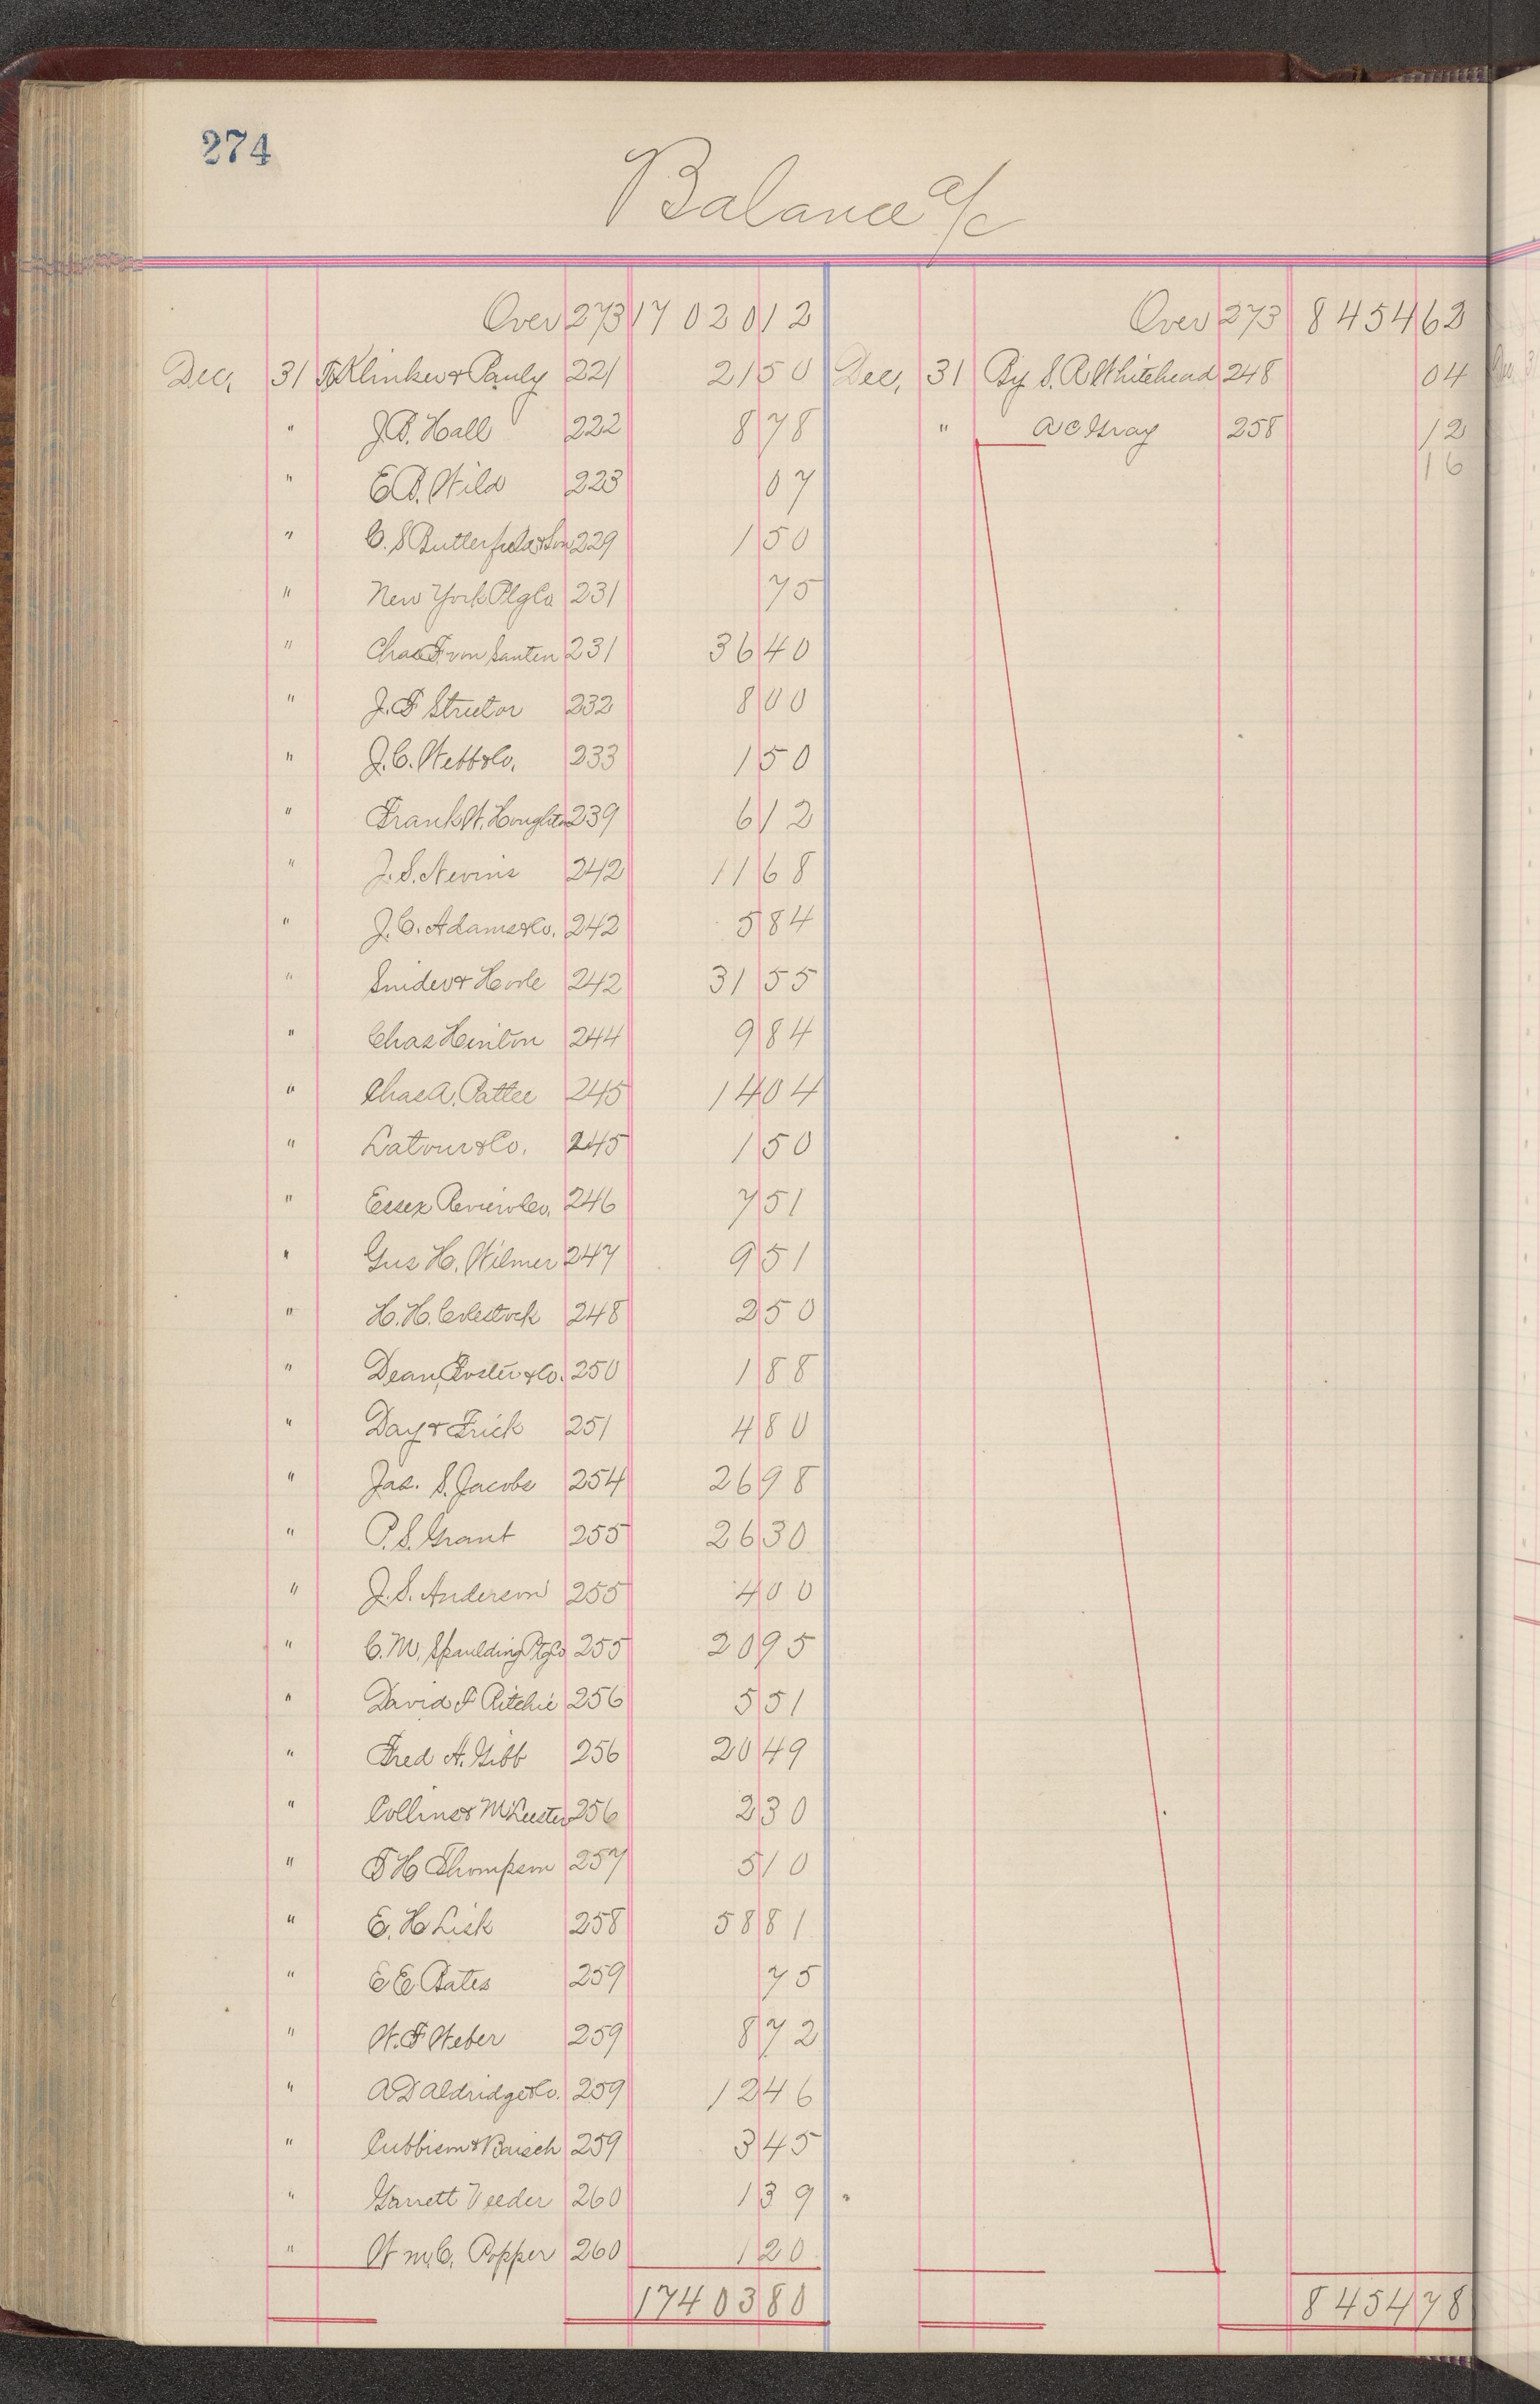 274
Balance a/c
Over 273 17020 12
Dec, 31 To Klinker & Pauly 221 21 50
" J.B. Hall 222 8 78
" E.B. Wild 223 07
" C.S Butterfield & Son 229 1 50
" New York Plg Co 231 75
" Chas F. von Santen 231 36 40
" J.F Streetor 232 8 00
" J.C. Webb & Co. 233 1 50
" Frank W. Houghton 239 6 12
" J.S. Nevins 242 11 68
" J.C. Adams & Co. 242 5 84
" Snider & Hoole 242 31 55
" Chas Heinton 244 9 84
" Chas A. Pattee 245 14 04
" Latour & Co. 245 1 50
" Essex Review Co, 246 7 51
" Gus H. Wilmer 247 9 51
" H.H. Colestock 248 2 50
" Dean, Foster & Co. 250 1 88
" Day & Frick 251 4 80
" Jas. S. Jacobs 254 26 98
" P.S. Grant 255 26 30
" J.S. Anderson 255 4 00
" C.M, Spaulding Ptg Co 255 20 95
" David F Ritchie 256 5 51
" Fred A. Gibb 256 20 49
" Collins & McLeester 256 2 30
" F H Thompson 257 5 10
" E. H Lisk 258 58 81
" E E Bates 259 75
" W.F Weber 259 8 72
" A D Aldridge & Co. 259 12 46
" Cubbison & Baisch 259 3 45
" Garrett Veeder 260 1 39
" Wm. C. Popper 260 1 20
17403 80
Over 273 8454 62
Dec, 31 By S.R. Whitehead 248 04
" A C Gray 258 12
16
8454 78